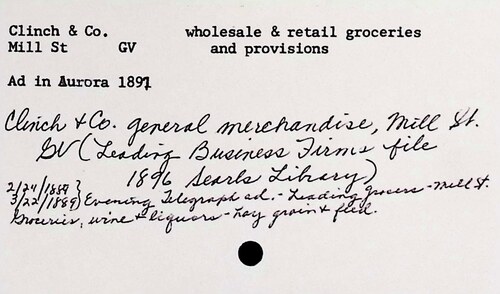 Clinch & Co. wholesale & retail groceries
Mill St GV and provisions
Ad in Aurora 1891
Clinch & Co. general merchandise, Mill St.
GV (Leading Business Firms file
1896 Searls Library)
2/24/1889 }
3/22/1889) Evening Telegraph ad. - Leading grocers - Mill St.
Groceries, wine & liquors - hay grain & feed.